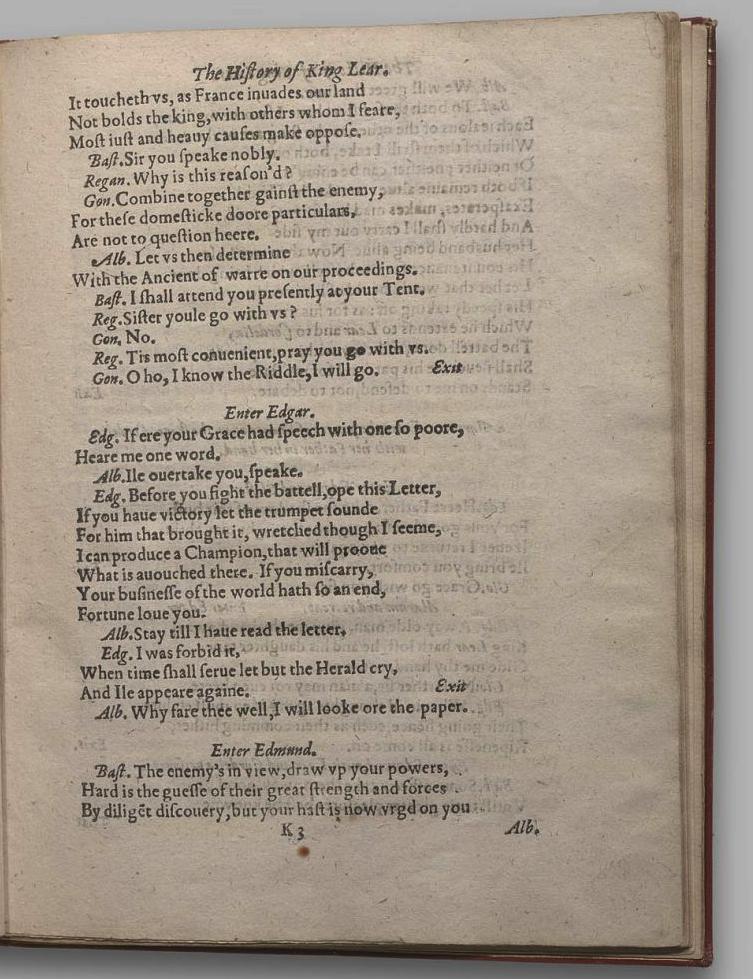 The Hiſtory of King Lear.
It toucheth vs, as France inuades our land
Not bolds the king, with others whom I feare,
Moſt iuſt and heauy cauſes make oppoſe.
Baſt. Sir you ſpeake nobly.
Regan. Why is this reaſon'd?
Gon. Combine together gainſt the enemy,
For theſe domeſticke doore particulars,
Are not to queſtion heere.
Alb. Let vs then determine
With the Ancient of warre on our proceedings.
Baſt. I ſhall attend you preſently at your Tent.
Reg. Siſter youle go with vs?
Gon. No.
Reg. Tis moſt conuenient, pray you go with vs.
Gon. O ho, I know the Riddle, I will go. Exit
Enter Edgar.
Edg. If ere your Grace had ſpeech with one ſo poore,
Heare me one word.
Alb. Ile ouertake you, ſpeake.
Edg. Before you fight the battell, ope this Letter,
If you haue victory let the trumpet ſounde
For him that brought it, wretched though I ſeeme,
I can produce a Champion, that will prooue
What is auouched there. If you miſcarry,
Your buſineſſe of the world hath ſo an end,
Fortune loue you.
Alb. Stay till I haue read the letter.
Edg. I was forbid it,
When time ſhall ſerue let but the Herald cry,
And Ile appeare againe. Exit
Alb. Why fare thee well, I will looke ore the paper.
Enter Edmund.
Baſt. The enemy's in view, draw vp your powers,
Hard is the gueſſe of their great ſtrength and forces
By diligēt diſcouery, but your haſt is now vrgd on you
K 3 Alb.